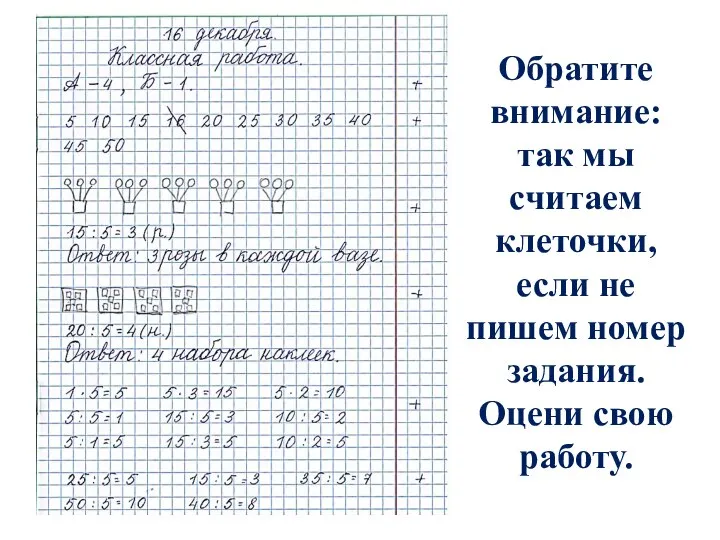 16 декабря.
Классная работа.
А – 4 , Б – 1. +
5 10 15 16 20 25 30 35 40 +
45 50
+
15 : 5 = 3 (р.)
Ответ: 3 розы в каждой вазе.
+
20 : 5 = 4 (н.)
Ответ: 4 набора наклеек.
1 · 5 = 5 5 · 3 = 15 5 · 2 = 10
+
5 : 5 = 1 15 : 5 = 3 10 : 5 = 2
5 : 1 = 5 15 : 3 = 5 10 : 2 = 5
25 : 5 = 5 15 : 5 = 3 35 : 5 = 7 +
50 : 5 = 10 40 : 5 = 8
Обратите
внимание:
так мы
считаем
клеточки,
если не
пишем номер
задания.
Оцени свою
работу.